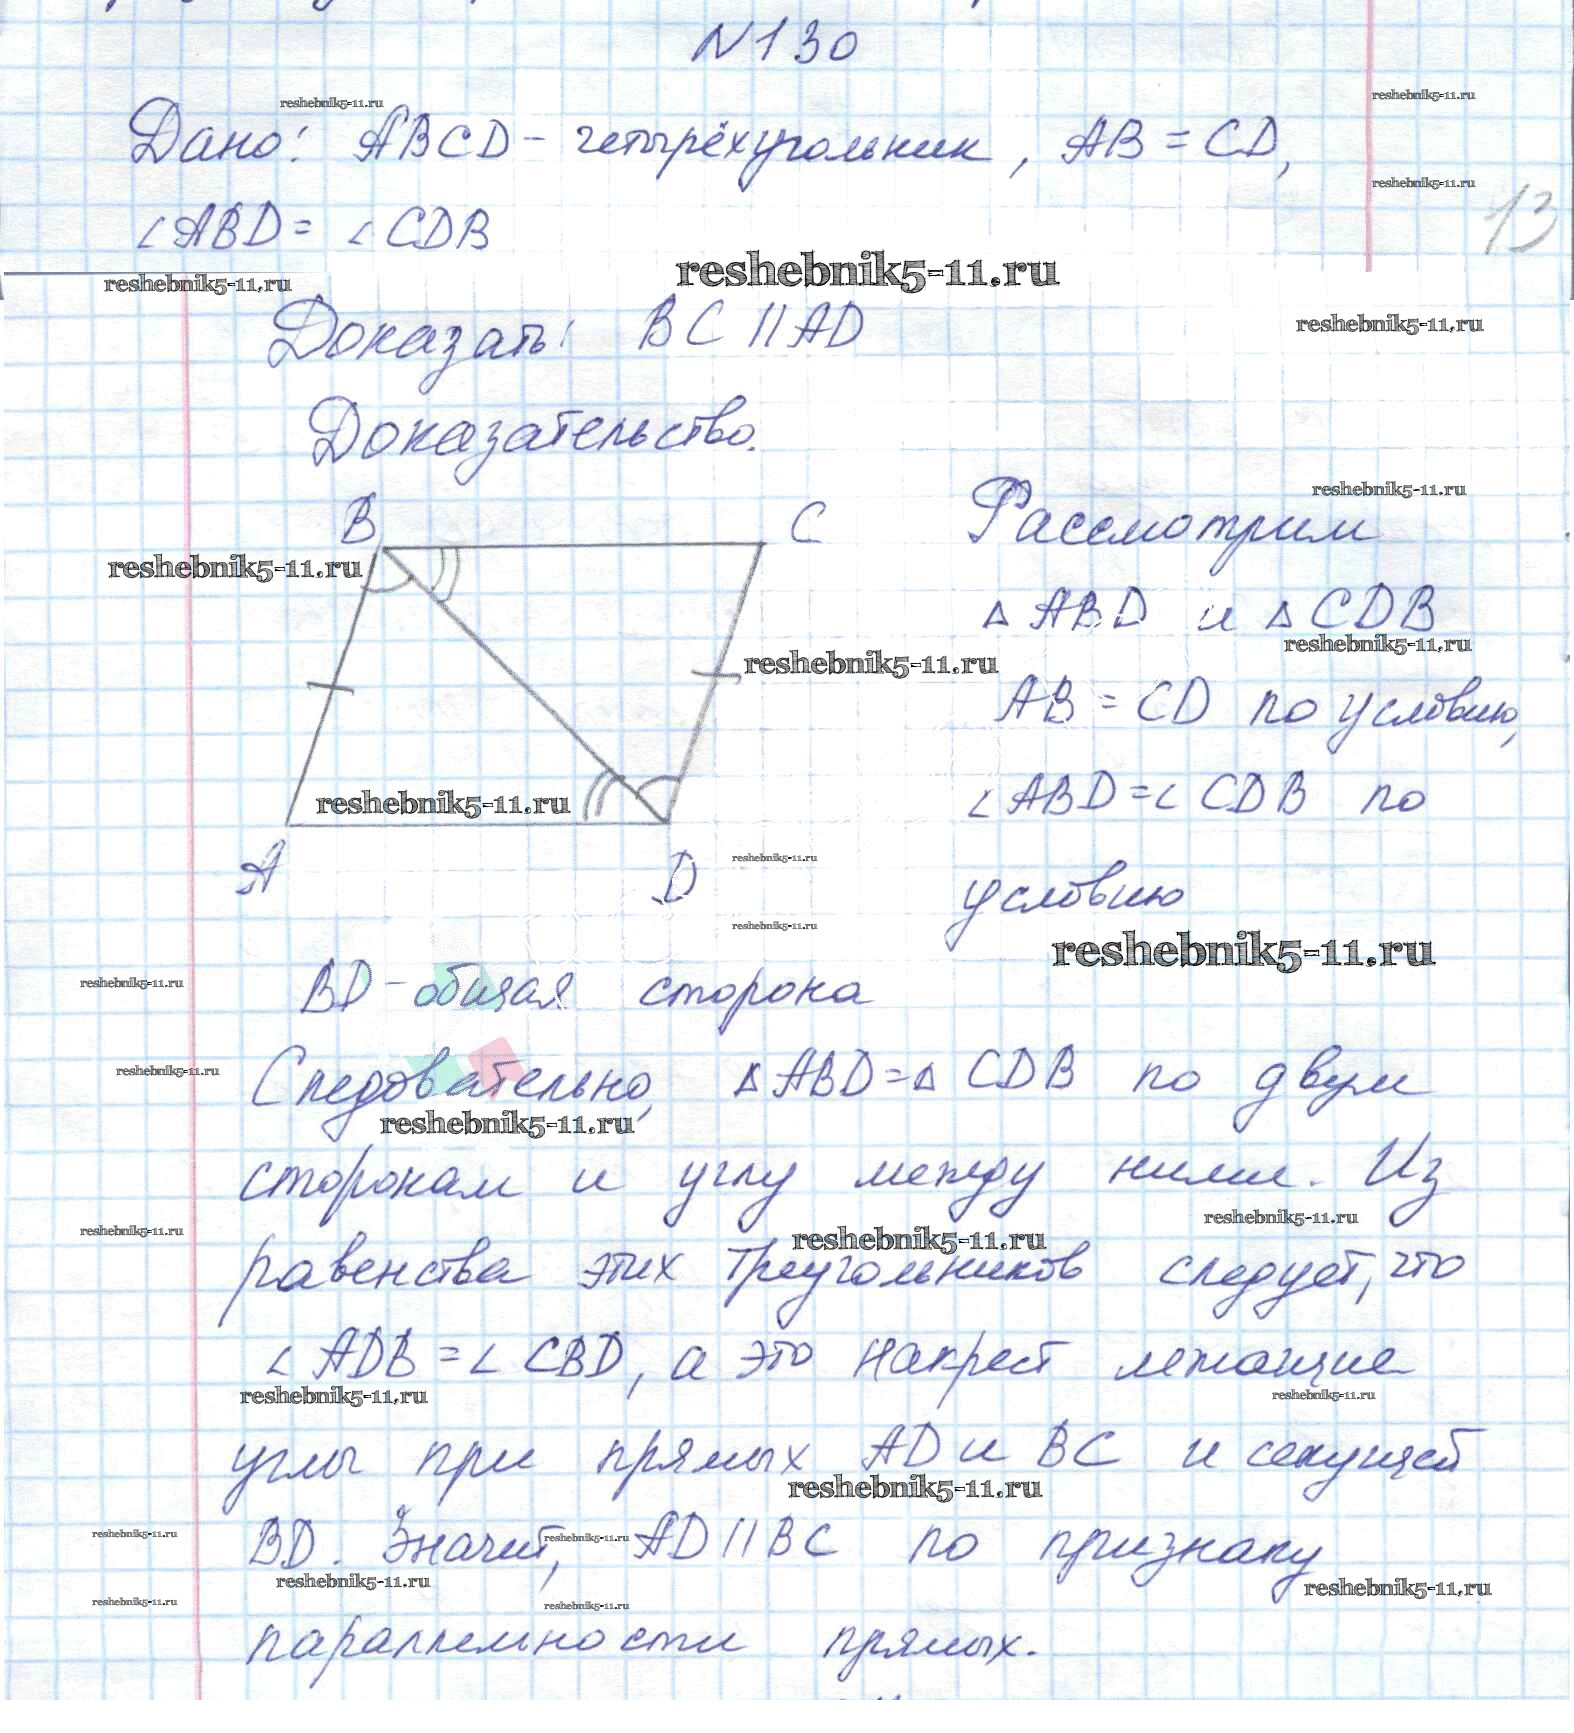 N130
reshebnik5-11.ru
reshebnik5-11.ru
Дано: ABCD - четырёхугольник, AB = CD,
reshebnik5-11.ru
13
∠ABD = ∠CDB
reshebnik5-11.ru
reshebnik5-11.ru
Доказать: BC || AD
reshebnik5-11.ru
Доказательство.
reshebnik5-11.ru
B C Рассмотрим
reshebnik5-11.ru
△ ABD и △ CDB
reshebnik5-11.ru
reshebnik5-11.ru
AB = CD по условию,
reshebnik5-11.ru
∠ABD = ∠CDB по
A D
reshebnik5-11.ru
условию
reshebnik5-11.ru
reshebnik5-11.ru
BD - общая сторона
reshebnik5-11.ru
Следовательно, △ABD = △ CDB по двум
reshebnik5-11.ru
reshebnik5-11.ru
сторонам и углу между ними. Из
reshebnik5-11.ru
reshebnik5-11.ru
reshebnik5-11.ru
равенства этих треугольников следует, что
∠ADB = ∠CBD, а это накрест лежащие
reshebnik5-11.ru
reshebnik5-11.ru
углы при прямых AD и BC и секущей
reshebnik5-11.ru
BD. Значит, AD || BC по признаку
reshebnik5-11.ru
reshebnik5-11.ru
reshebnik5-11.ru
reshebnik5-11.ru
reshebnik5-11.ru
reshebnik5-11.ru
параллельности прямых.